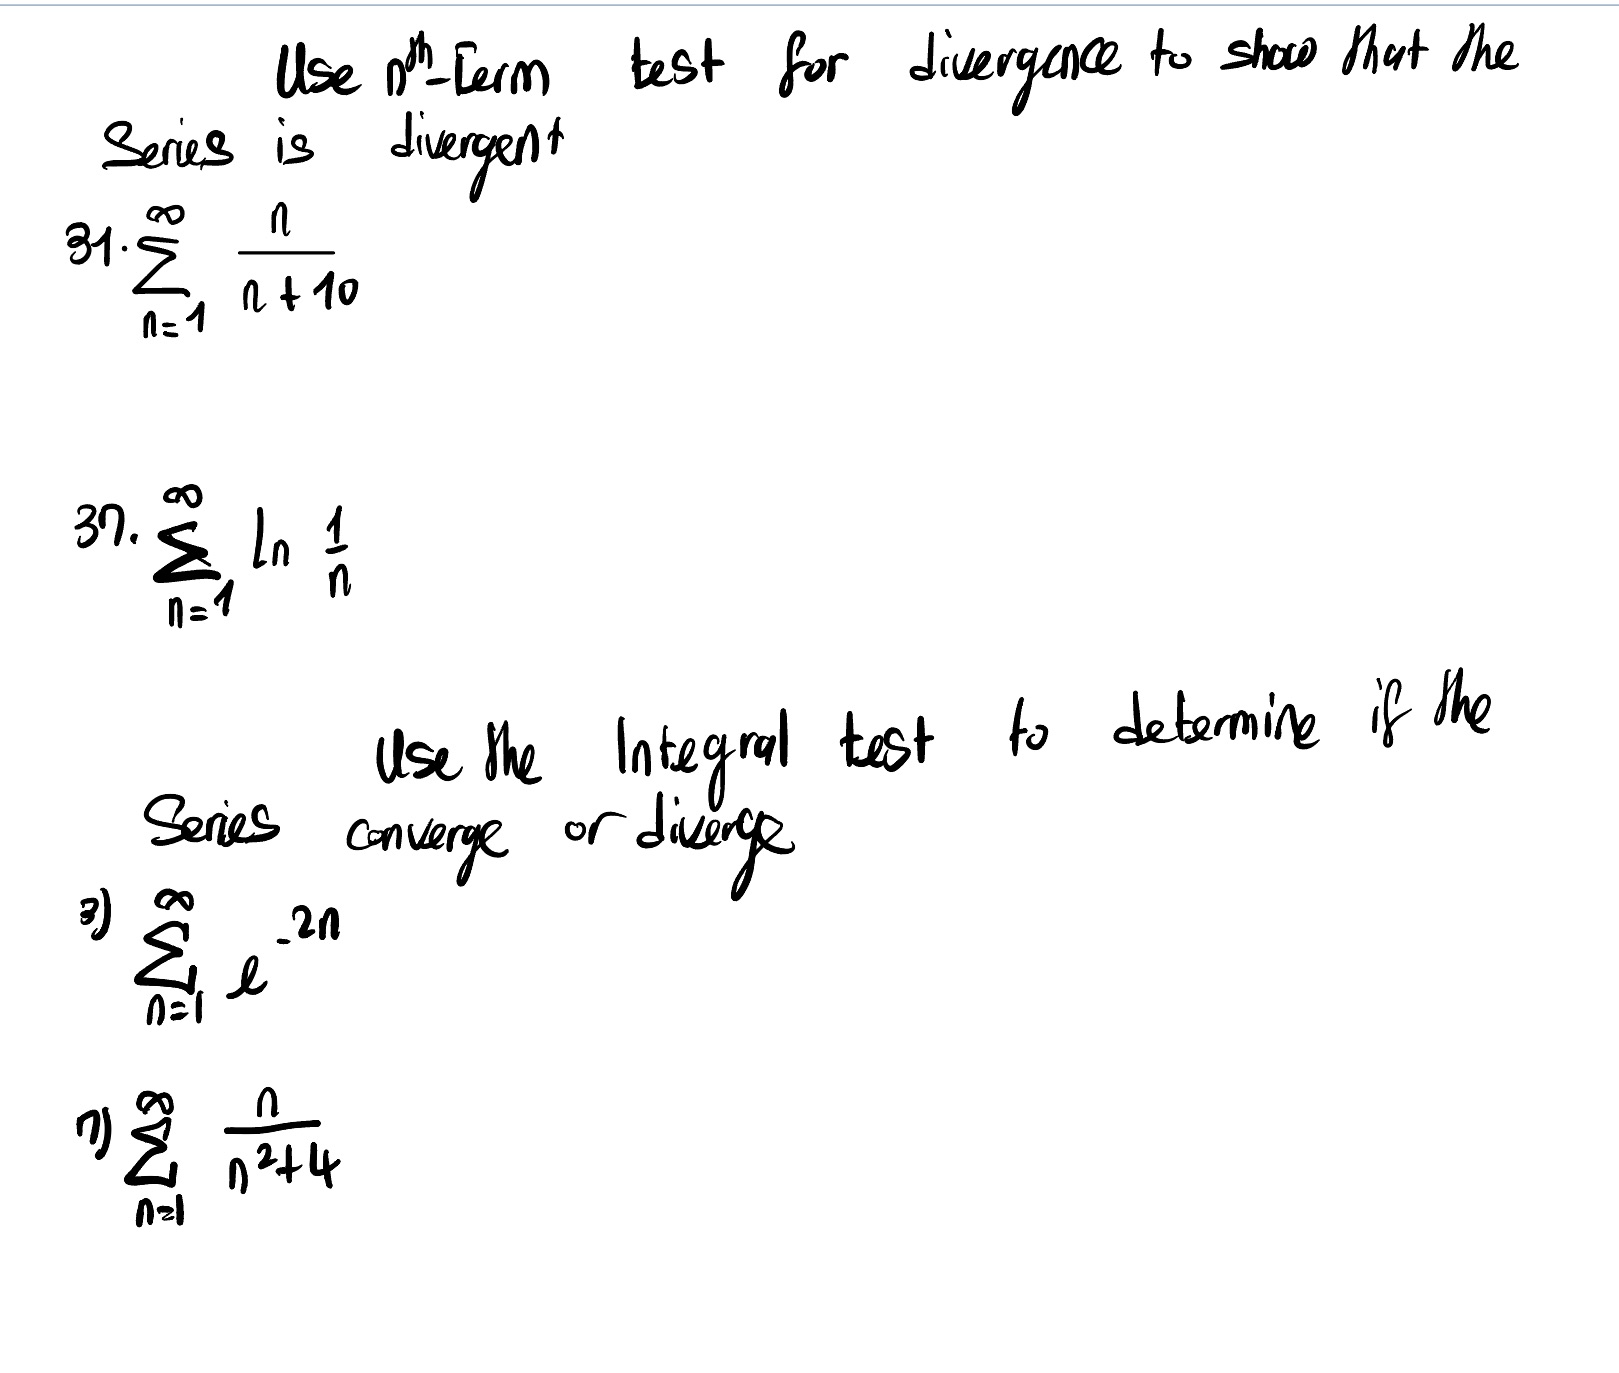 Use nth-term test for divergence to show that the
Series is divergent
31. ∞ Σ n=1 n/(n + 10)
37. ∞ Σ n=1 ln 1/n
Use the Integral test to determine if the
Series converge or diverge
3) ∞ Σ n=1 e^-2n
7) ∞ Σ n=1 n/(n^2+4)